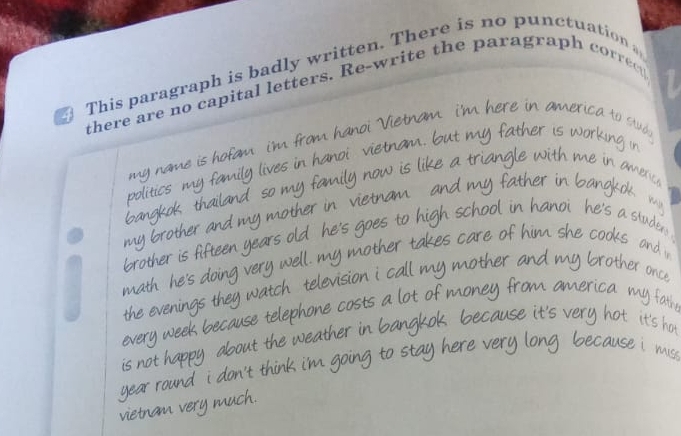 4 This paragraph is badly written. There is no punctuation
there are no capital letters. Re-write the paragraph correctly,
my name is hofam i'm from hanoi Vietnam i'm here in america to study
politics my family lives in hanoi vietnam. but my father is working in
bangkok thailand so my family now is like a triangle with me in america
my brother and my mother in vietnam and my father in bangkok my
brother is fifteen years old he's goes to high school in hanoi he's a student
math he's doing very well. my mother takes care of him she cooks and in
the evenings they watch television i call my mother and my brother once
every week because telephone costs a lot of money from america my father
is not happy about the weather in bangkok because it's very hot it's hot
year round i don't think i'm going to stay here very long because i miss
vietnam very much.